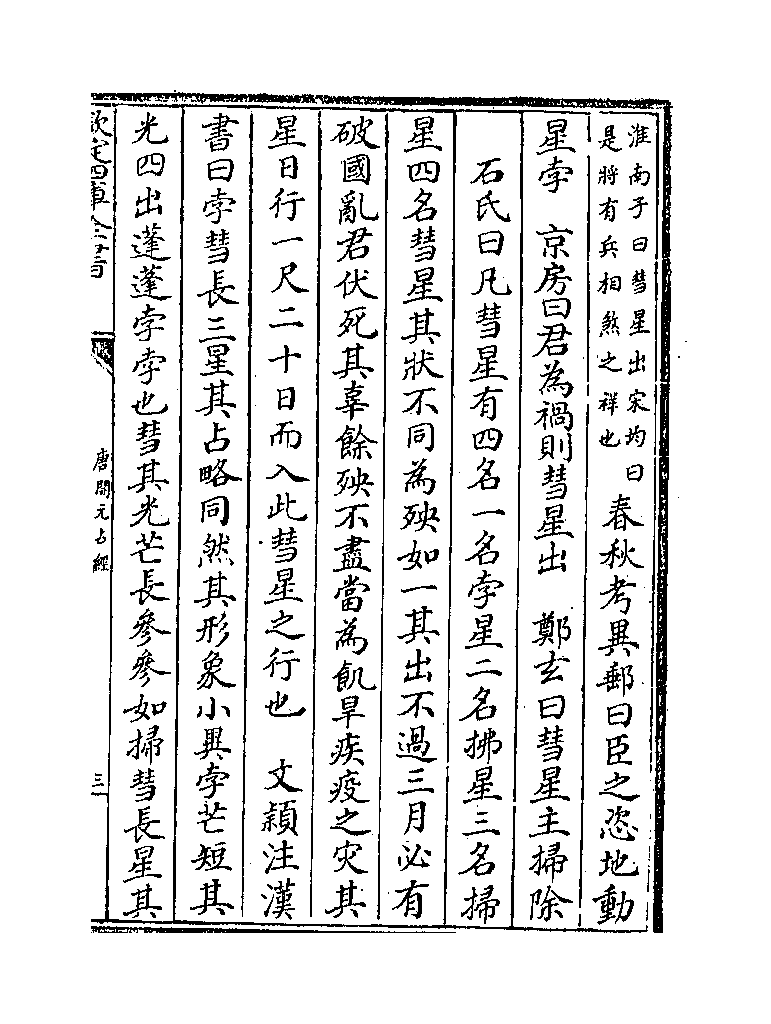 淮南子曰彗星出宋均曰
是將有兵相煞之祥也
春秋考異郵曰臣之恣地動
星孛　京房曰君為禍則彗星出　鄭玄曰彗星主掃除
石氏曰凡彗星有四名一名孛星二名拂星三名掃
星四名彗星其狀不同為殃如一其出不過三月必有
破國亂君伏死其辜餘殃不盡當為飢旱疾疫之灾其
星日行一尺二十日而入此彗星之行也　文穎注漢
書曰孛彗長三星其占略同然其形象小異孛芒短其
光四出蓬蓬孛孛也彗其光芒長參參如掃彗長星其
欽定四庫全書
唐開元占經
三